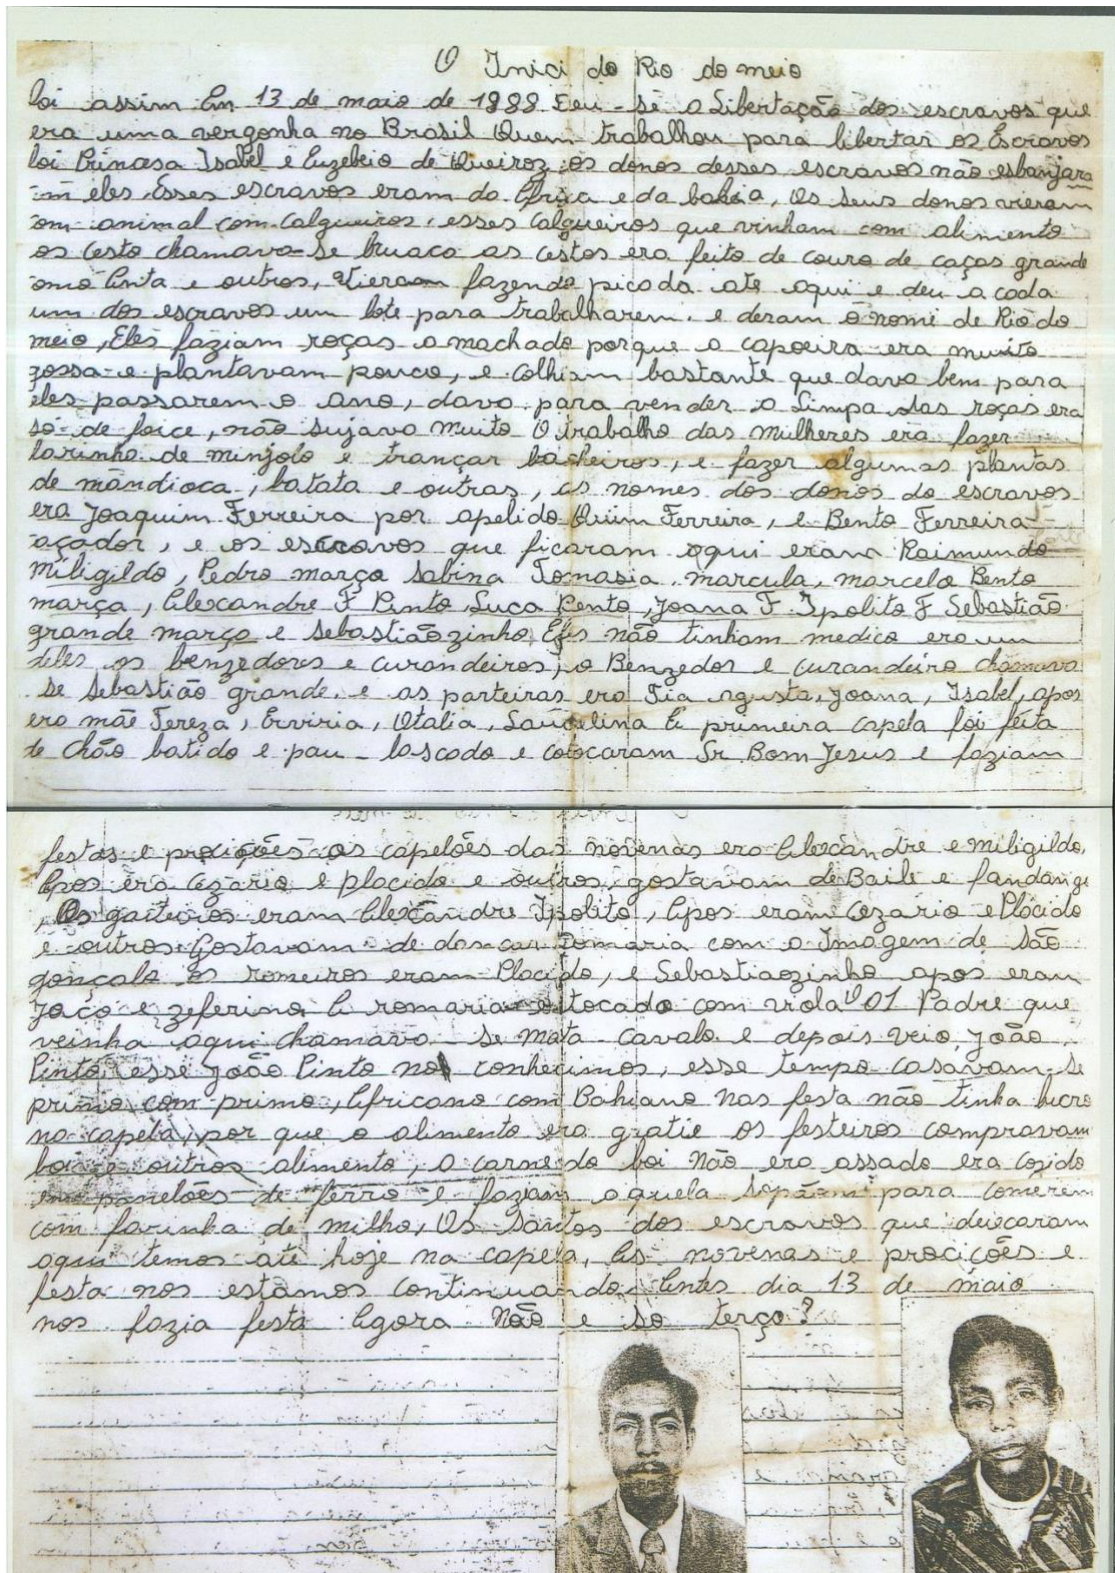 O Inici do Rio do meio
foi assim Em 13 de maio de 1988 Deu-se a Libertação dos escravos que
era uma vergonha no Brasil Quem trabalhou para libertar os Escravos
foi Princesa Isabel e Euzebeio de Queiroz os donos desses escravos não esbanjara
em eles, Esses escravos eram da Africa e da bahia, Os seus donos vieram
om animal com Calgueiros, esses Calgueiros que vinham com alimento
os cesto chamava-se bruaca as cestos era feito de couro de caças grande
omo Anta e outros, Vieram fazendo picada ate aqui e deu a cada
um dos escravos um lote para trabalharem, e deram o nome de Rio do
meio, Eles faziam roças a machado porque a capoeira era muito
gossa e plantavam pouco, e colhiam bastante que dava bem para
eles passarem o ano, dava para vender a Limpa das roças era
so de foice, não sujava muito O trabalho das mulheres era fazer
farinha de minjolo e trançar bacheiros, e fazer algumas plantas
de mandioca, batata e outras, os nomes dos donos do escravos
era Joaquim Ferreira por apelido Quim Ferreira, e Bento Ferreira
açador, e os escravos que ficaram aqui eram Raimundo
Miligildo, Pedro março Sabina Tomasia, marcula, marcelo Bento
março, Alexandre F Pinto, Luca Pento, Joana F. Ipolito F Sebastião
grande março e Sebastiãozinho Eles não tinham medico era um
deles os benzedores e curandeiros, o Benzedor e curandeiro chamava
se Sebastião grande, e as parteiras era Tia agusta, Joana, Isabel, apos
era mãe Tereza, Erviria, Otalia, Laudelina A primeira capela foi feita
de chão batido e pau-lascado e colocaram Sr Bom Jesus e faziam
festas e procições os capelões das novenas era Alexandre e Miligildo,
Apos era Cezário e placido e outros, gostavam de Baile e fandango
, Os gaiteiros eram Alexandre Ipolito, Apos eram Cezario e Plácido
e outros Gostavam de dançar Romaria com a Imagem de São
gonçalo os romeiros eram Placido, e Sebastiaozinho apos eram
Jaço e zeferino A romaria e tocado com viola O 01 Padre que
veinha aqui chamava-se Mata-Cavalo e depois veio, João
Pinto, esse João Pinto nos conhecimos, esse tempo casavam-se
primo com primo, Africano com Bahiano Nas festa não tinha lucro
na capela, por que o alimento era gratie os festeiros compravam
boi e outros alimento, a carne do boi Não era assado era cozido
em panelões de ferro e faziam aquela sopãm para comerem
com farinha de milho, Os Santos dos escravos que deixaram
aqui temos até hoje na capela, As novenas e prociçoes e
festa nos estamos continuando Antes dia 13 de maio
nos fazia festa Agora Não e so terço?